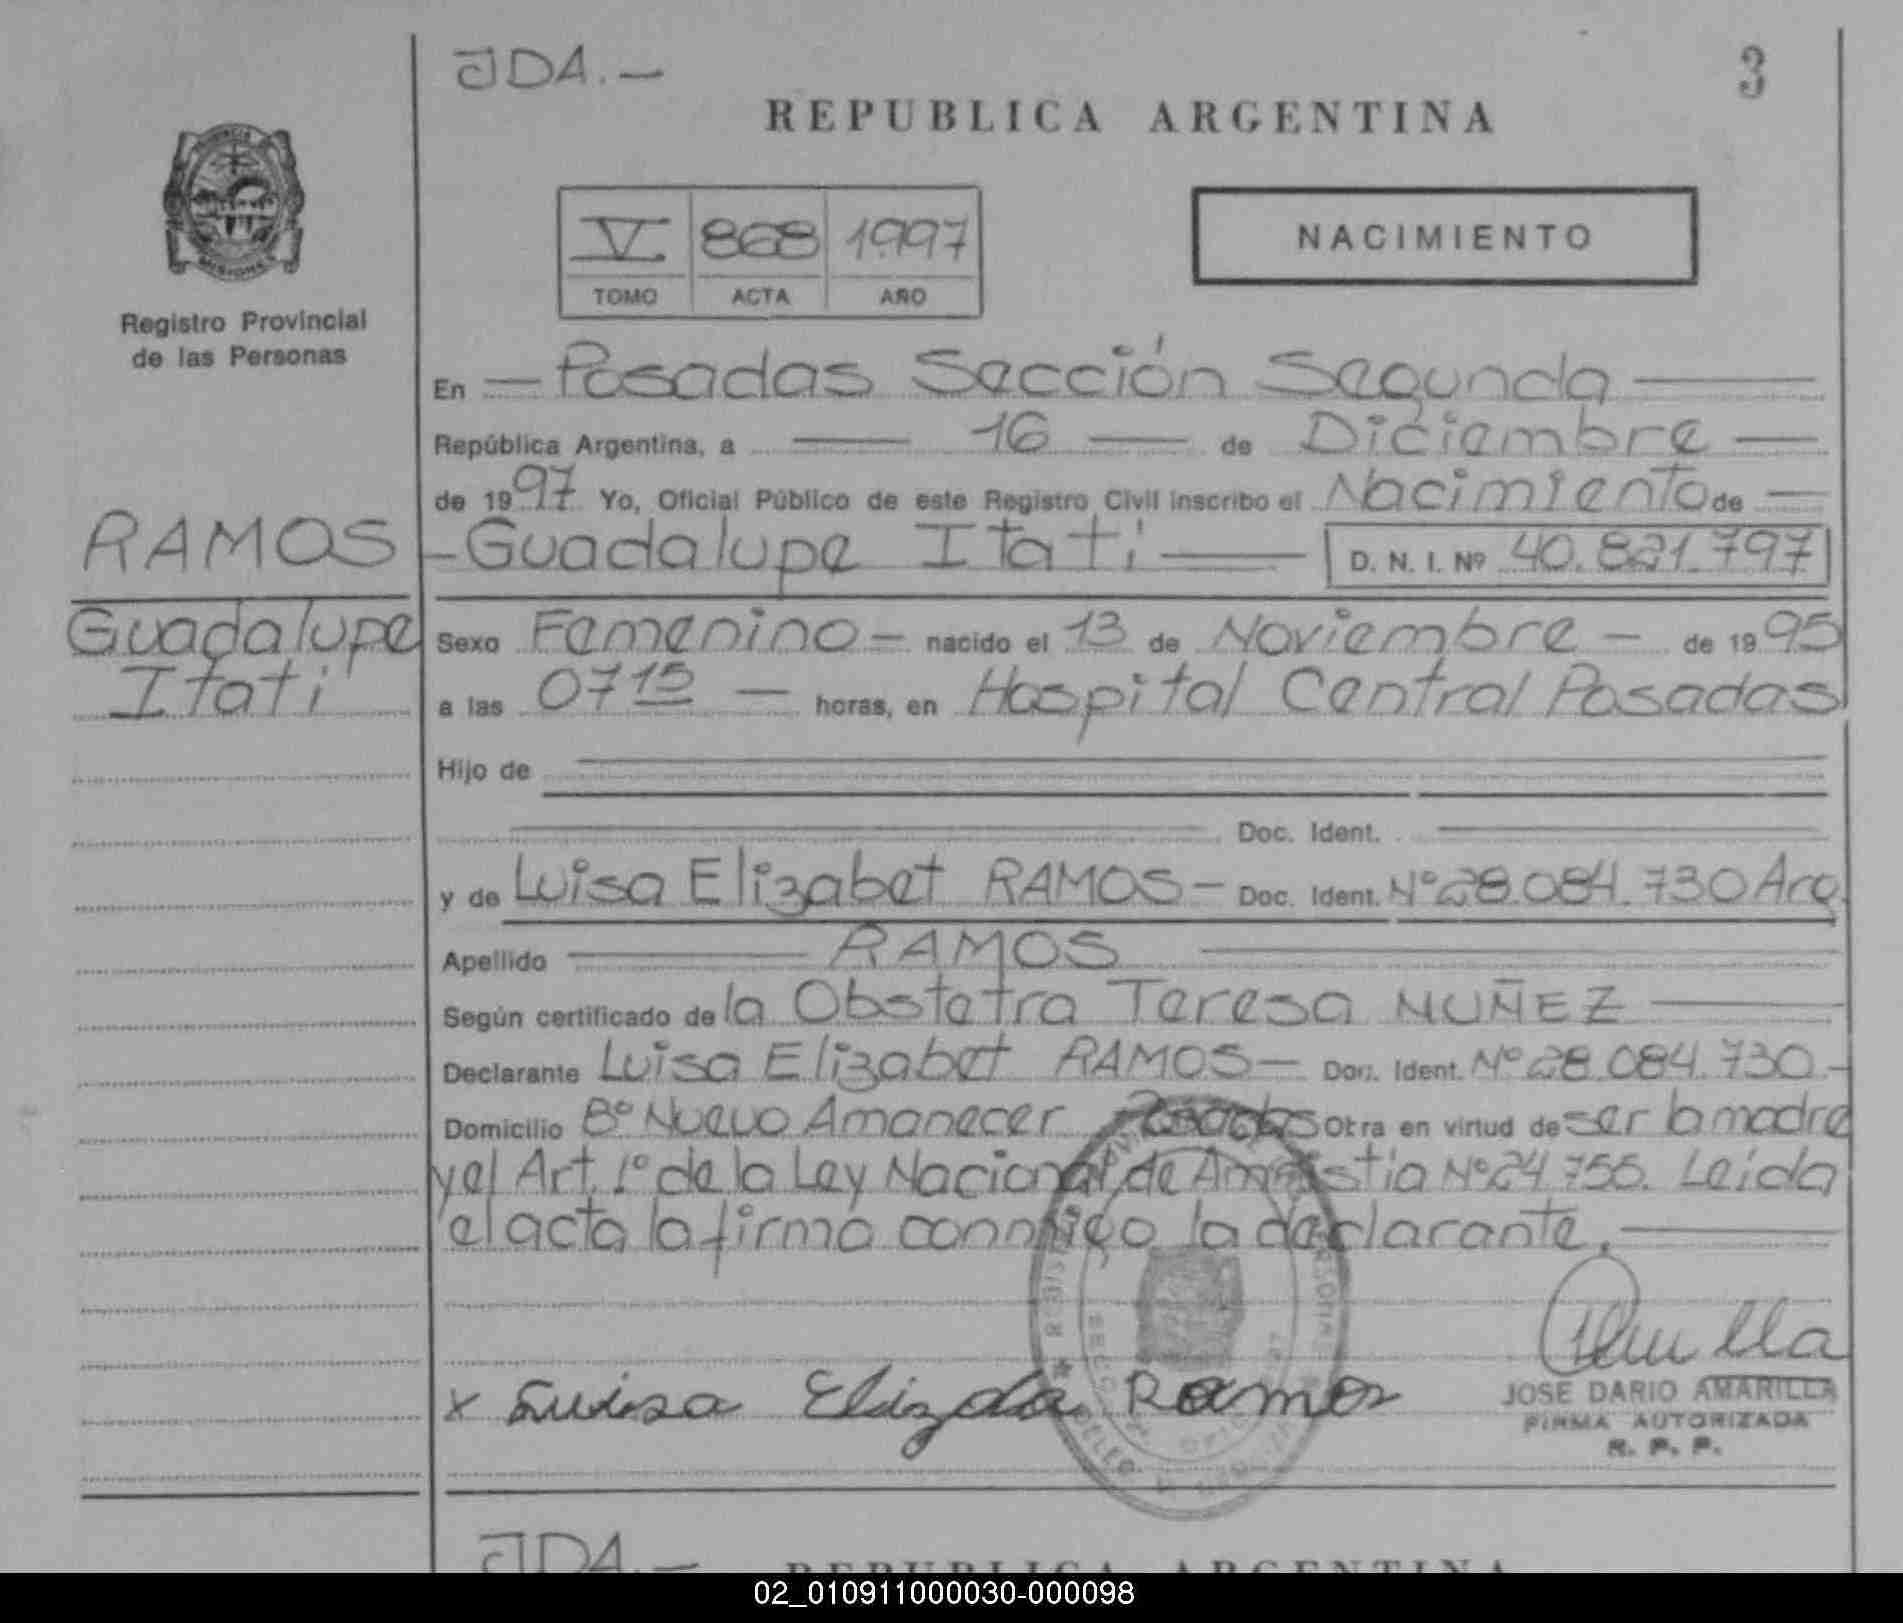 JDA.—
3
REPUBLICA ARGENTINA
V 868 1997
TOMO ACTA AÑO
NACIMIENTO
MISIONES
Registro Provincial
de las Personas
RAMOS
Guadalupe
Itati
En — Posadas Sección Segunda —
República Argentina, a — 16 — de Diciembre —
de 1997 Yo, Oficial Público de este Registro Civil inscribo el Nacimiento de —
- Guadalupe Itati — D. N. I. Nº 40.821.797
Sexo Femenino = nacido el 13 de Noviembre — de 1995
a las 0715 — horas, en Hospital Central Posadas
Hijo de
Doc. Ident.
y de Luisa Elizabet RAMOS — Doc. Ident. Nº 28.084.730 Arg.
Apellido — RAMOS —
Según certificado de la Obstetra Teresa NUÑEZ —
Declarante Luisa Elizabet RAMOS — Doc. Ident. Nº 28.084.730.-
Domicilio Bº Nuevo Amanecer Posadas Otra en virtud de ser la madre
y el Art. 1º de la Ley Nacional de Amnistia Nº 24.755. Leida
el acta la firma conmigo la declarante. —
x Luisa Elizabet Ramos
JOSE DARIO AMARILLA
FIRMA AUTORIZADA
R. P. P.
JDA.—
REPUBLICA ARGENTINA
02_010911000030-000098